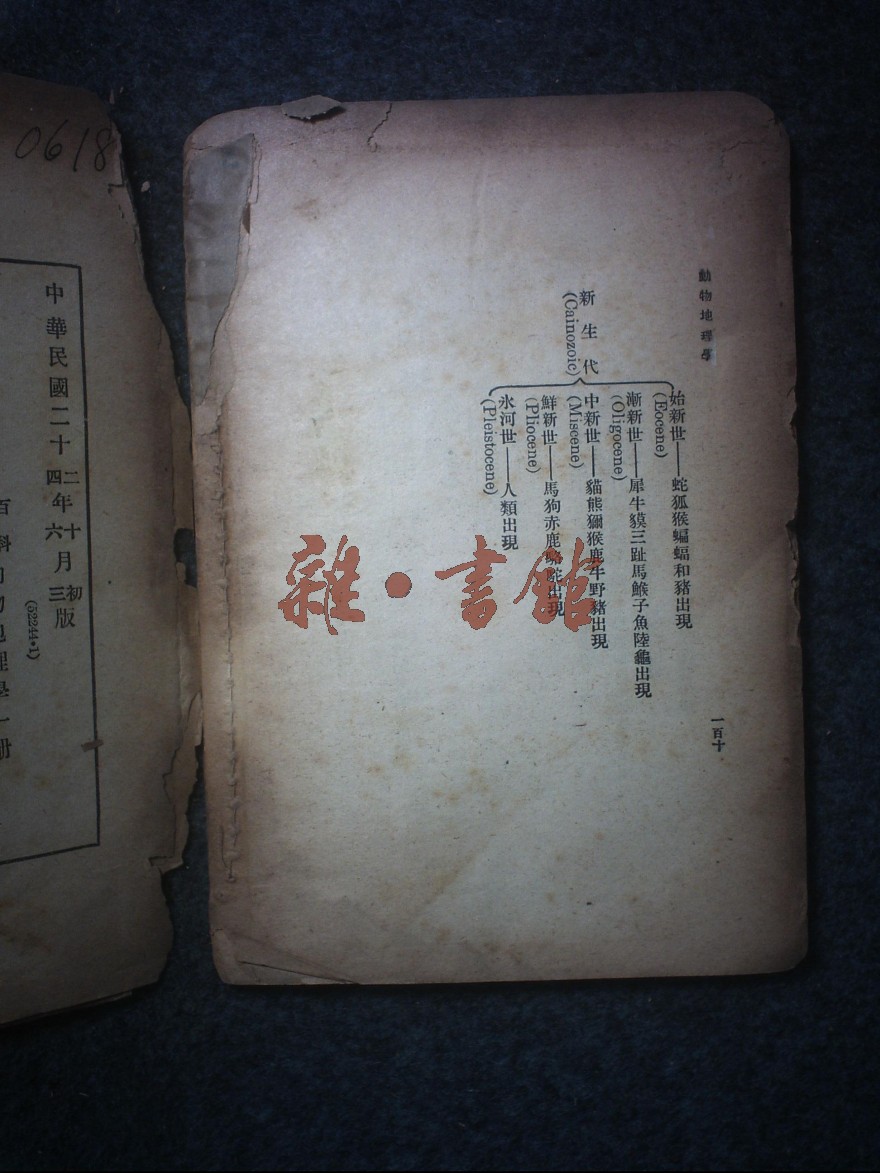 動物地理學
始新世——蛇狐猴蝙蝠和豬出現
(Eocene)
漸新世——犀牛貘三趾馬鯸子魚陸龜出現
(Oligocene)
中新世——貓熊獼猴鹿牛野豬出現
(Miscene)
鮮新世——馬狗赤鹿駱駝出現
(Pliocene)
氷河世——人類出現
(Pleistocene)
新生代
(Cainozoic)
一百十
雜·書館
0618
中華民國二十二年十月初版
四年六月三版
(52244·1)